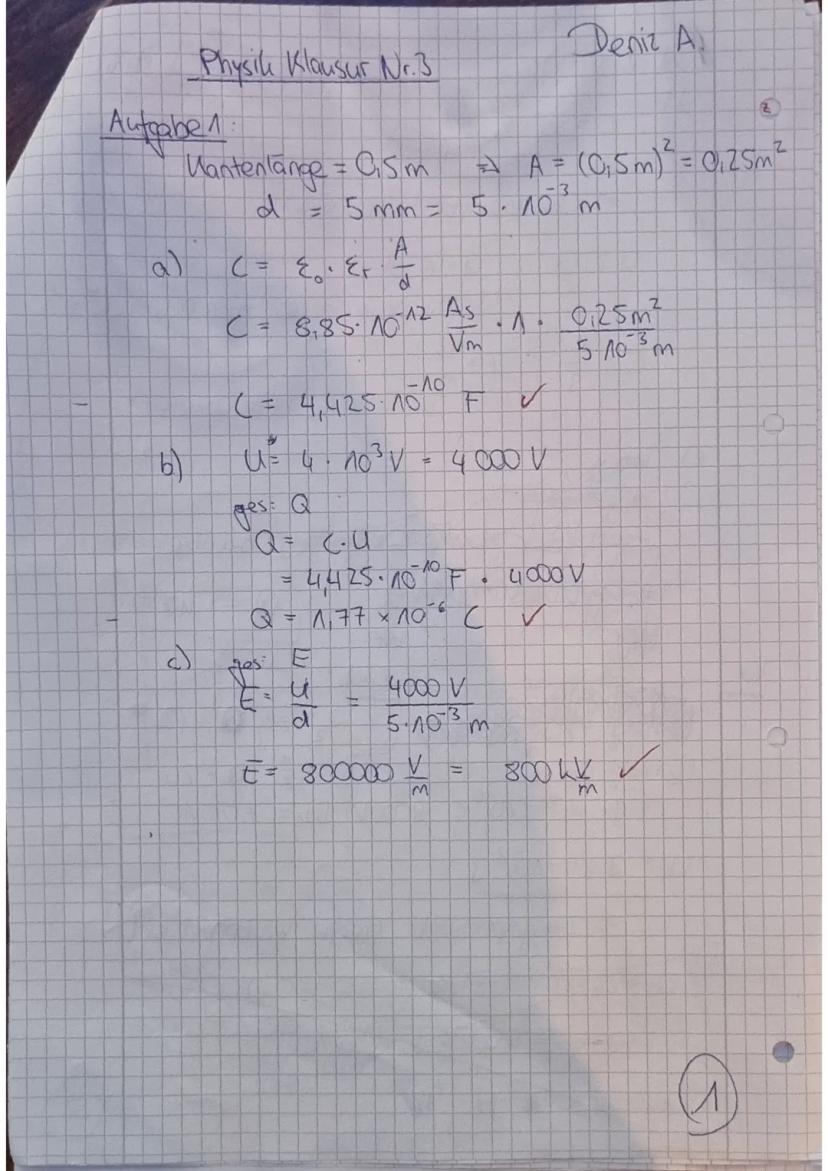 Deniz A.
Physik Klausur Nr. 3
Aufgabe 1:
Kantenlänge = 0,5 m ⇒ A = (0,5 m)² = 0,25 m²
d = 5 mm = 5 · 10⁻³ m
a) C = ε₀ · εᵣ · A/d
C = 8,85 · 10⁻¹² As/Vm · 1 · 0,25 m² / 5 · 10⁻³ m
– C = 4,425 · 10⁻¹⁰ F ✓
b) U = 4 · 10³ V = 4000 V
ges: Q
Q = C · U
= 4,425 · 10⁻¹⁰ F · 4000 V
– Q = 1,77 × 10⁻⁶ C ✓
c) ges: E
E = U/d = 4000 V / 5 · 10⁻³ m
E = 800000 V/m = 800 kV/m ✓
1